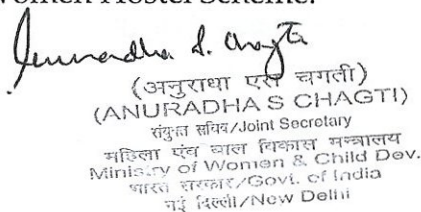 Women Hostel Scheme.
Anuradha S. Chagti
(अनुराधा एस चगती)
(ANURADHA S CHAGTI)
संयुक्त सचिव/Joint Secretary
महिला एंव बाल विकास मन्त्रालय
Ministry of Women & Child Dev.
भारत सरकार/Govt. of India
नई दिल्ली/New Delhi